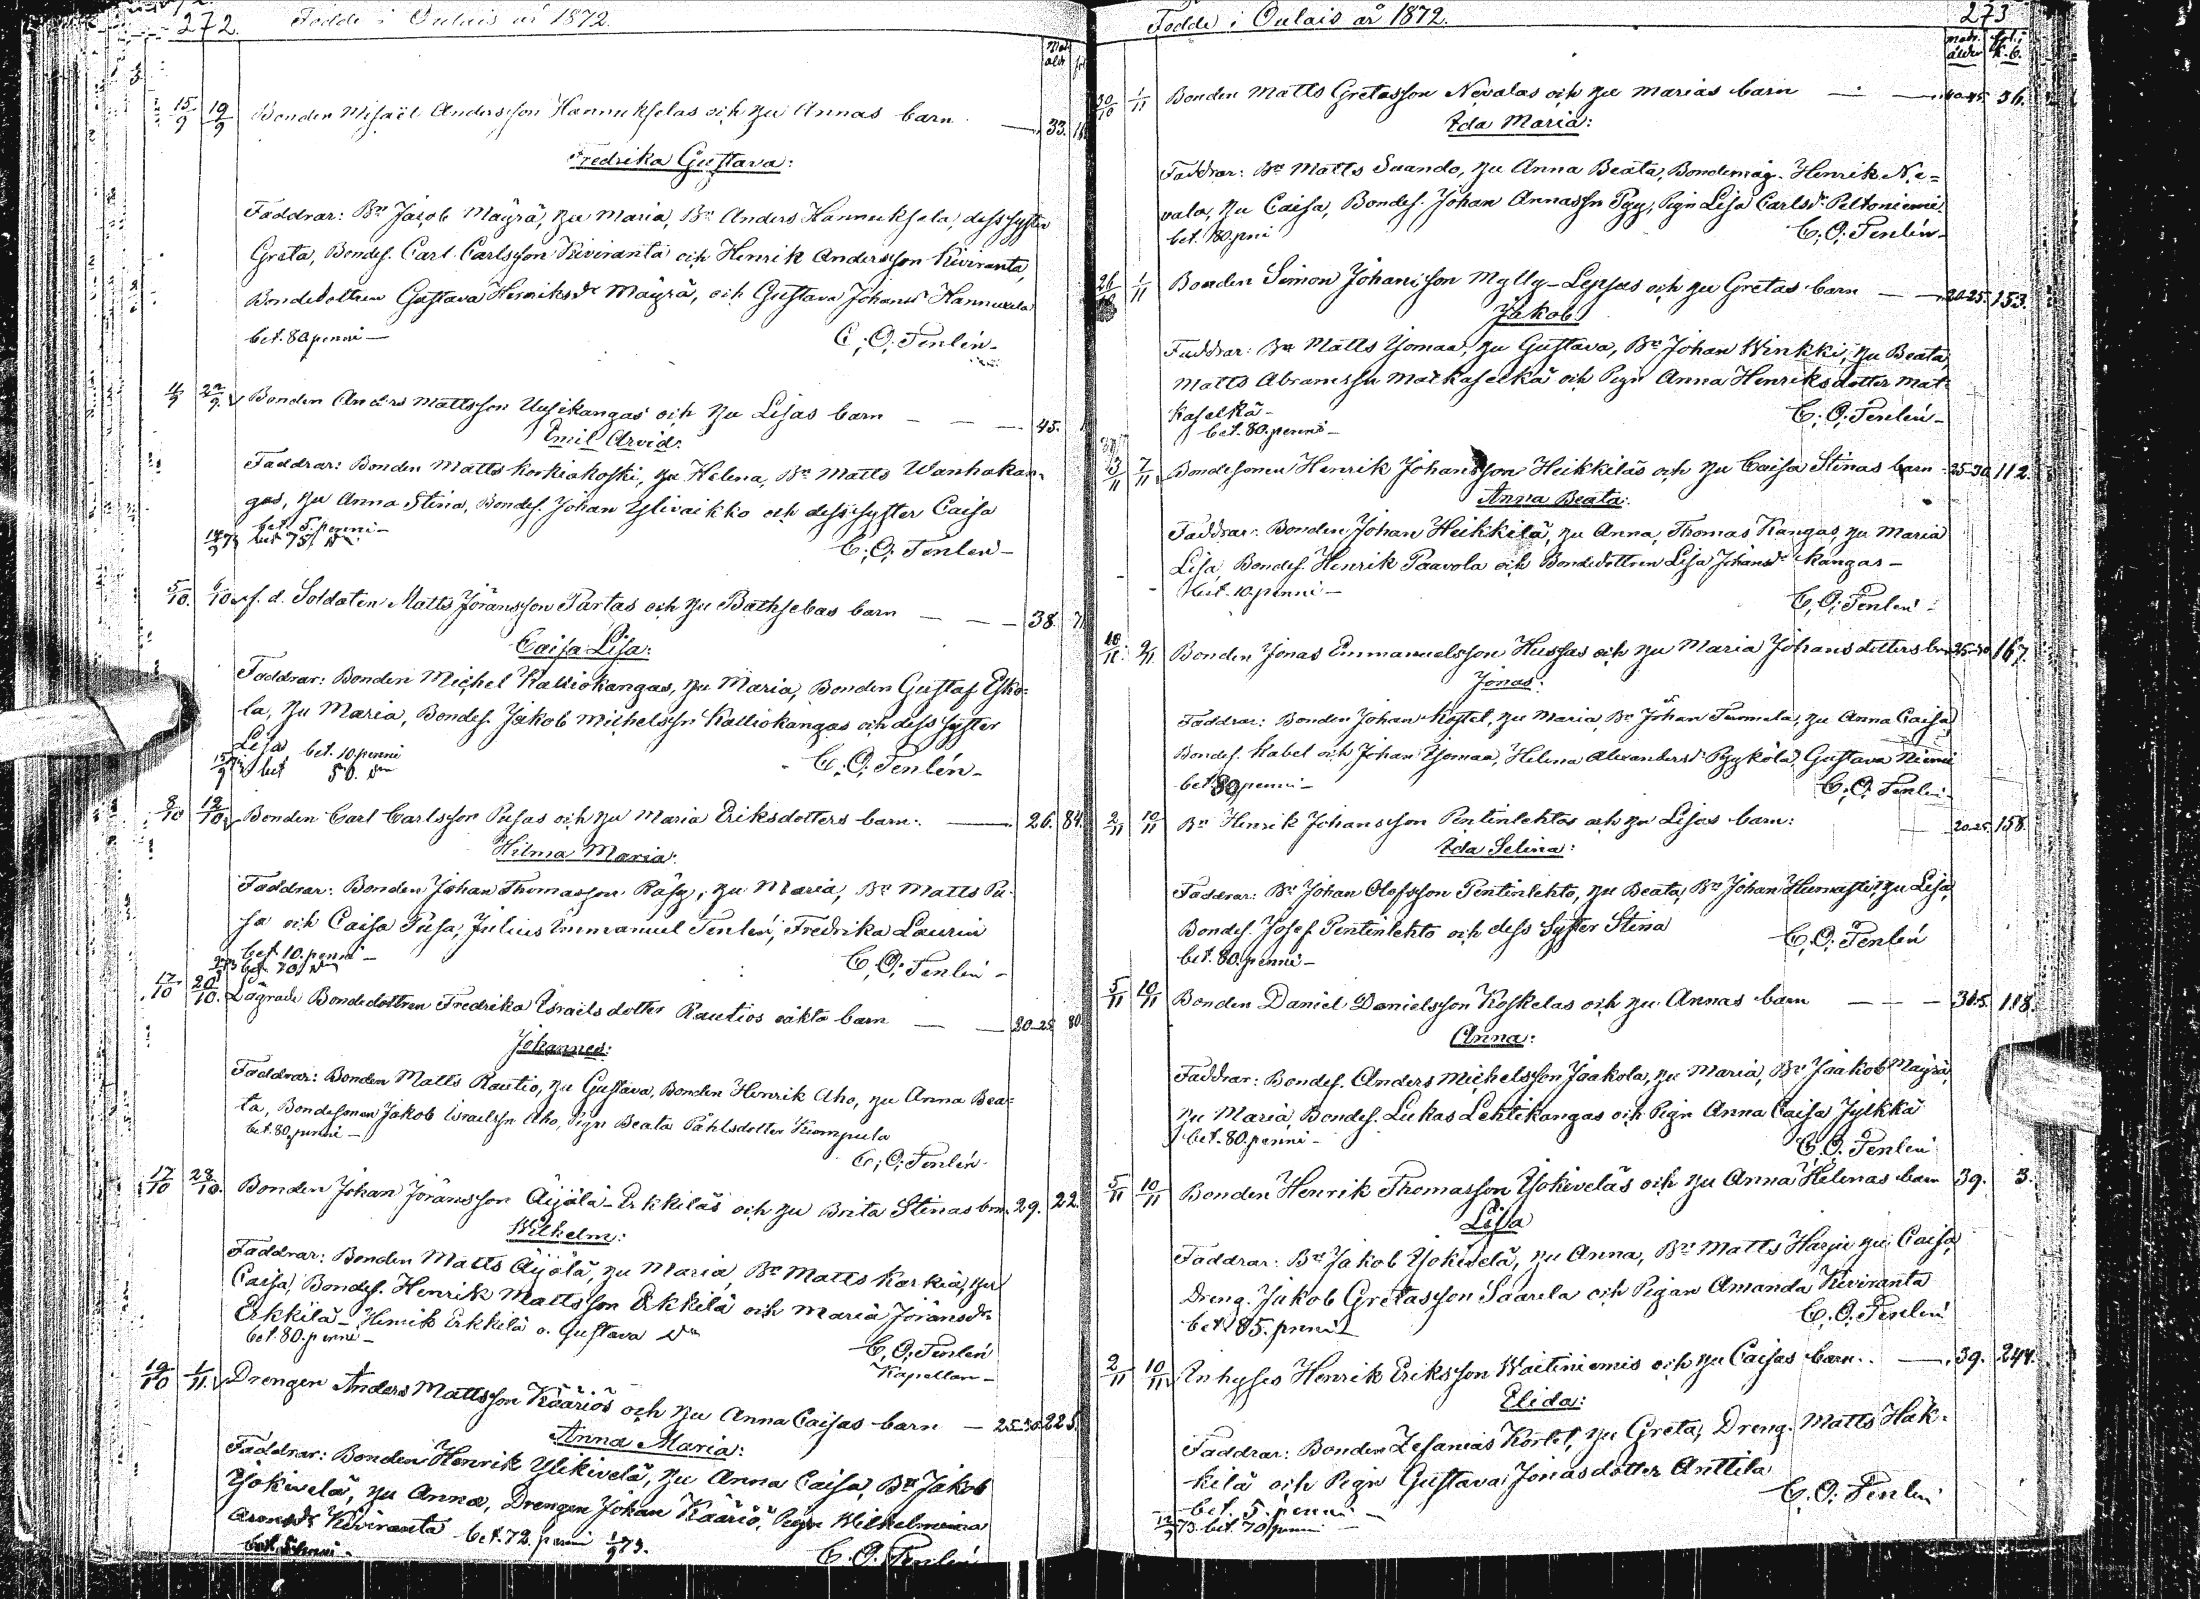 272. Födde i Oulais år 1872.
15/9 19/9 Bonden Misaël Andersson Hannukselas och Hu Annas barn — 33.
Fredrika Gustava:
Faddrar: Bn Jacob Mäyrä, Hu Maria, Bn Anders Hannuksela, dess syster
Greta, Bondes. Carl Carlsson Kiviranta och Henrik Andersson Kiviranta,
Bondedottren Gustava Henriksdr Mäyrä, och Gustava Johansdr
bet. 80 penni — C. O. Tenlén.
22/9 Bonden Anders Mattsson Uusikangas och Hu Lisas barn — — — 45.
Emil Arvid:
Faddrar: Bonden Matts Korkiakoski, Hu Helena, Bn Matts Wanhakan-
gas, Hu Anna Stina, Bondes. Johan Ylivaikko och dess syster Caisa
bet. 5. penni —
C. O. Tenlén —
5/10. 6/10 f. d. Soldaten Matts Jöransson Partas och Hu Bathsebas barn — — — 38. 7
Caisa Lisa:
Faddrar: Bonden Michel Kalliokangas, Hu Maria, Bonden Gustaf Esko-
la, Hu Maria, Bondes. Jakob Michelssn Kalliokangas och dess syster
Lisa bet. 10 penni
bet 50. dn C. O. Tenlén —
8/10 12/10 Bonden Carl Carlsson Pusas och Hu Maria Eriksdotters barn: — 26. 84.
Hilma Maria:
Faddrar: Bonden Johan Thomasson Räsy, Hu Maria, Bn Matts Pu-
sa och Caisa Pusa, Julius Emmanuel Tenlén, Fredrika Laurin
bet 10. penni —
bet. 70 dn C. O. Tenlén —
17/10 20/10. Lägrade Bondedottren Fredrika Israelsdotter Rautios oäkta barn — — 20-25 80.
Johannes:
Faddrar: Bonden Matts Rautio, Hu Gustava, Bonden Henrik Aho, Hu Anna Bea-
ta, Bondesonen Jakob Israelssn Aho, Pign Beata Påhlsdotter Kumpula
bet. 80. penni —
C. O. Tenlén.
17/10 28/10. Bonden Johan Jöransson Äijälä-Erkkiläs och Hu Brita Stinas brn. 29. 22.
Wilhelm:
Faddrar: Bonden Matts Äijälä, Hu Maria, Bn Matts Korkia, Hu
Caisa, Bondes. Henrik Mattsson Erkkilä och Maria Jöransdr
Erkkilä — Henrik Erkkilä o. Gustava dn
bet. 80. penni — C. O. Tenlén
Kapellan —
19/10 1/11. Drengen Anders Mattsson Kääriös och Hu Anna Caisas barn — 25-30 225.
Anna Maria:
Faddrar: Bonden Henrik Ylikivelä, Hu Anna Caisa, Bn Jakob
Yjokivelä, Hu Anna, Drengen Johan Kääriö, Pign Wilhelmina
Aronsdr Kiviranta bet. 72. penni 1/9 73.
C. O. Tenlén
Födde i Oulais år 1872. 273
30/10 1/11 Bonden Matts Gretasson Nevalas och Hu Marias barn — — 40-45 36.
Ida Maria:
Faddrar: Bn Matts Suando, Hu Anna Beata, Bondemåg. Henrik Ne-
vala, Hu Caisa, Bondes. Johan Annassn Pyy, Pign Lisa Carlsdr Peltoniemi
bet. 80. pni C. O. Tenlén —
26/10 1/11 Bonden Simon Johansson Mylly-Lepsas och Hu Gretas barn — — 20-25. 153.
Jakob:
Faddrar: Bn Matts Yjomaa, Hu Gustava, Bn Johan Winkki, Hu Beata,
Matts Abramssn Matkaselkä och Pign Anna Henriksdotter Mat-
kaselkä —
bet. 80. penni — C. O. Tenlén —
3/11 7/11 Bondesonen Henrik Johansson Heikkiläs och Hu Caisa Stinas barn 25-30 112.
Anna Beata:
Faddrar: Bonden Johan Heikkilä, Hu Anna, Thomas Kangas, Hu Maria
Lisa, Bondes. Henrik Paavola och Bondedottren Lisa Johansdr Kangas —
bet. 10. penni —
C. O. Tenlén
Bonden Jonas Emmanuelsson Hussas och Hu Maria Johansdotters brn 25-30 167.
Jonas:
Faddrar: Bonden Johan Kastel, Hu Maria, Bn Johan Tuomela, Hu Anna Caisa,
Bondes. Kabel och Johan Yjomaa, Helena Alexandersdr Pyykölä, Gustava Niemi
bet. 80 penni — C. O. Tenlén
2/11 10/11 Bn Henrik Johansson Pentinlehtos och Hu Lisas barn: — 20-25. 158.
Ida Selina:
Faddrar: Bn Johan Olofsson Pentinlehto, Hu Beata, Bn Johan Hurnasti, Hu Lisa,
Bondes. Josef Pentinlehto och dess Syster Stina
bet. 80. penni — C. O. Tenlén
5/11 10/11 Bonden Daniel Danielsson Koskelas och Hu Annas barn — — — 118.
Anna:
Faddrar: Bondes. Anders Michelsson Jaakola, Hu Maria, Bn Jaakob Mäyrä,
Hu Maria, Bondes. Lukas Lehtikangas och Pign Anna Caisa Jylkkä
bet. 80. penni —
C. O. Tenlén
5/11 10/11 Bonden Henrik Thomasson Yjokiveläs och Hu Anna Helenas barn 39. 3.
Lisa
Faddrar: Bn Jakob Yjokivelä, Hu Anna, Bn Matts Harju Hu Caisa,
Dreng. Jakob Gretasson Saarela och Pigan Amanda Kiviranta
bet. 85. penni C. O. Tenlén
2/11 10/11 Inhyses Henrik Eriksson Waitiniemis och Hu Caisas barn. — 39. 244.
Elida:
Faddrar: Bonden Zefanias Körtel, Hu Greta, Dreng. Matts Hak-
kilä och Pign Gustava Jonasdotter Anttila
bet. 5. penni —
73. bet. 70 penni — C. O. Tenlén